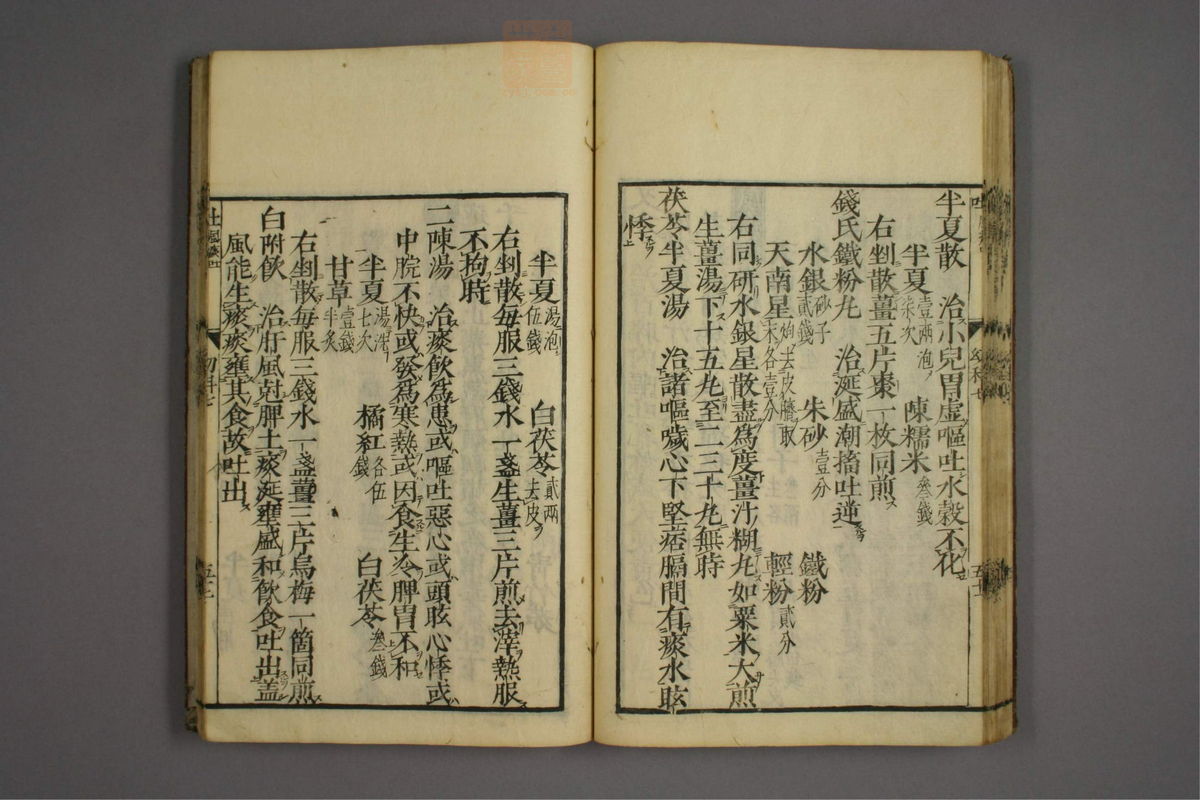 半夏散　治小兒胃虛嘔吐水穀不化
半夏壹兩泡柒次　陳糯米叄錢
右剉散薑五片棗一枚同煎
錢氏鐵粉丸　治涎盛潮搐吐逆
水銀砂子貳錢　朱砂壹分　鐵粉
天南星炮去皮臍取末各壹分　輕粉貳分
右同研水銀星散盡爲度薑汁糊丸如粟米大煎
生薑湯下十五丸至二三十丸無時
茯苓半夏湯　治諸嘔噦心下堅痞膈間有痰水眩
悸
半夏湯泡伍錢　白茯苓貳兩去皮
右剉散每服三錢水一盞生薑三片煎去滓熱服
不拘時
二陳湯　治痰飲爲患或嘔吐惡心或頭眩心悸或
中脘不快或發爲寒熱或因食生冷脾胃不和
半夏湯洗七次　橘紅各伍錢　白茯苓叄錢
甘草壹錢半炙
右剉散每服三錢水一盞薑三片烏梅一箇同煎
白附飲　治肝風尅脾土痰涎壅盛和飲食吐出蓋
風能生痰痰壅其食故吐出